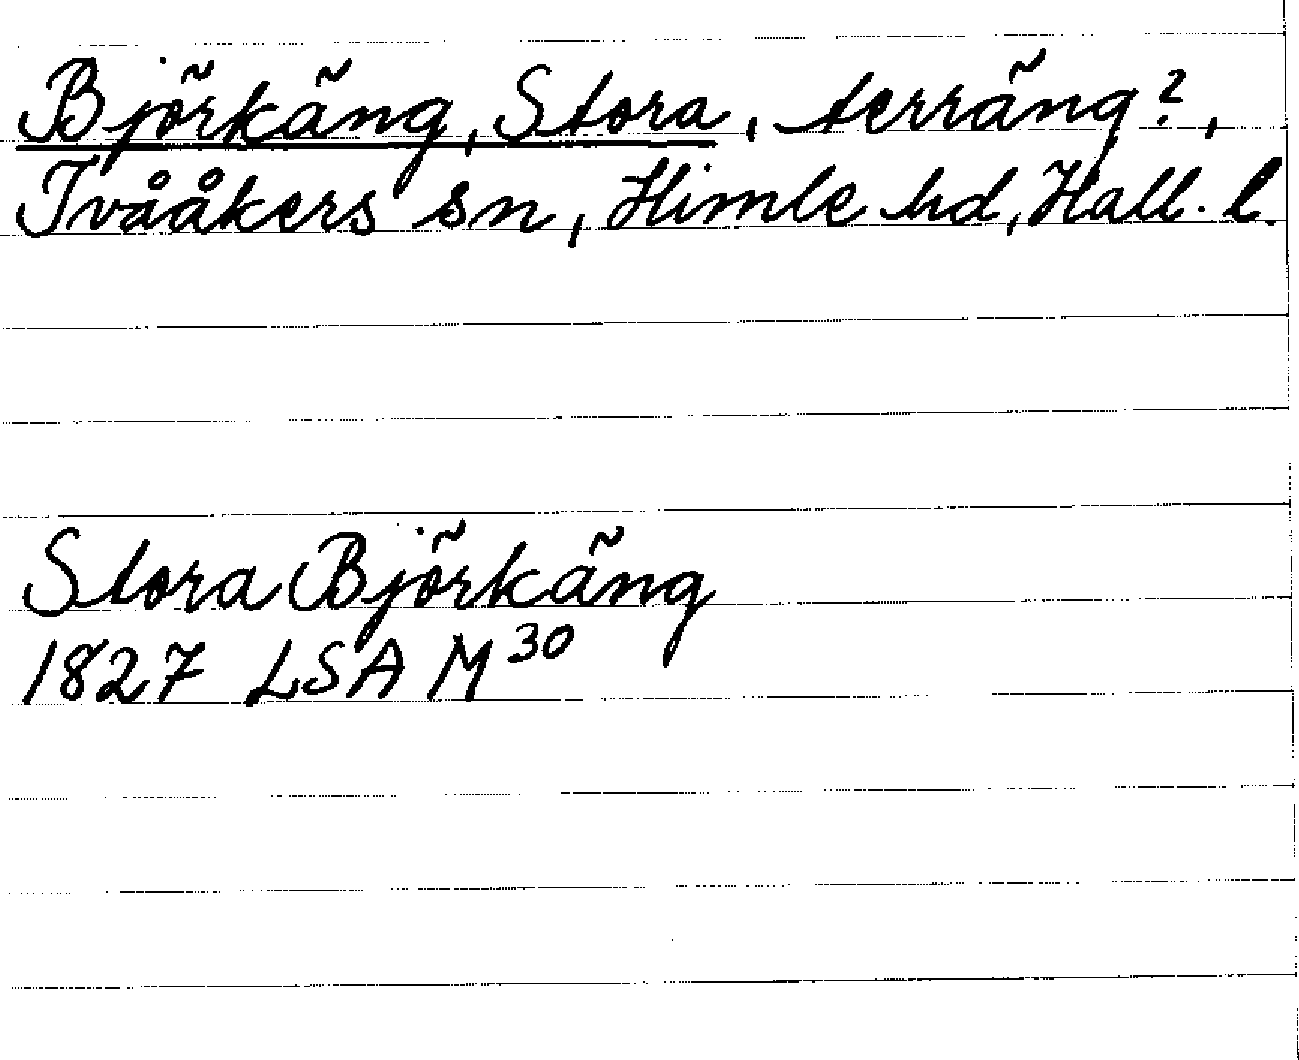 Björkäng, Stora, terräng?,
Tvååkers sn, Himle hd, Hall. l.
Stora Björkäng
1827 LSA M30